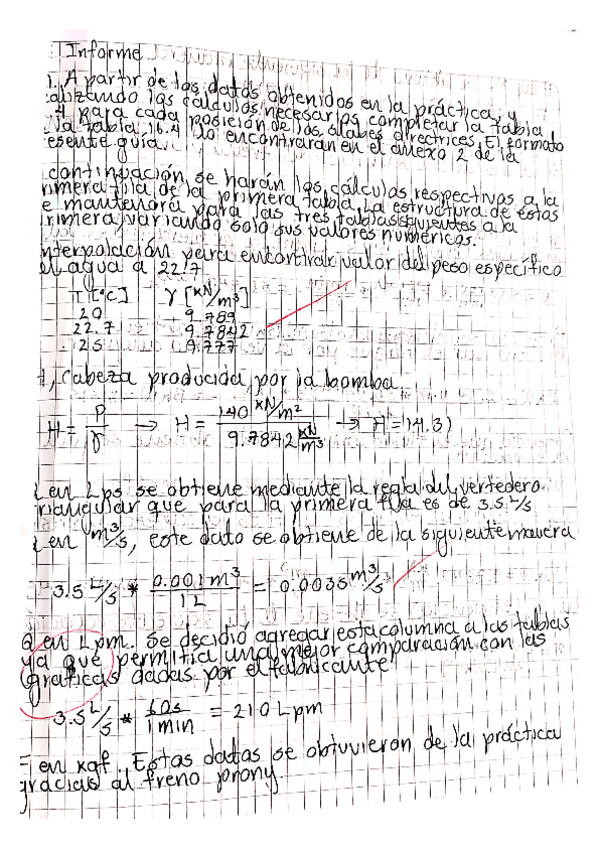 Informe
1. A partir de los datos obtenidos en la práctica, y
alizando los cálculos necesarios completar la tabla
4 para cada posición de los álabes directrices. El formato
la tabla 16.4 lo encontraran en el anexo 2 de la
esente guía.
continuación se harán los cálculos respectivos a la
rimera fila de la primera tabla. La estructura de estas
e mantendrá para las tres tablas siguientes a la
rimera, variando solo sus valores numéricos.
nterpolación para encontrar valor del peso específico
el agua a 22.7
T [°C] γ [kN/m³]
20 9.789
22.7 9.7842
25 9.777
H, Cabeza producida por la bomba.
H = P/γ → H = 140 kN/m² / 9.7842 kN/m³ → H = 14.31
en Lps se obtiene mediante la regla del vertedero
riangular que para la primera fila es de 3.5 L/s
en m³/s, este dato se obtiene de la siguiente manera
3.5 L/s * 0.001 m³ / 1L = 0.0035 m³/s
Q en Lpm. Se decidió agregar esta columna a las tablas
ya que permitía una mejor comparación con las
graficas dadas por el fabricante
3.5 L/s * 60s / 1min = 210 Lpm
F en kgf. Estos datos se obtuvieron de la práctica
gracias al freno prony.